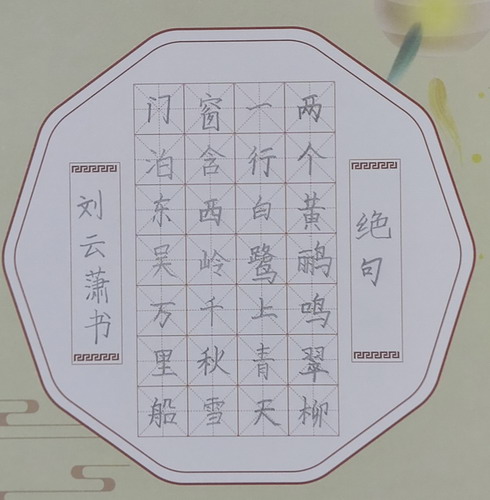 绝句
两个黄鹂鸣翠柳
一行白鹭上青天
窗含西岭千秋雪
门泊东吴万里船
刘云潇书